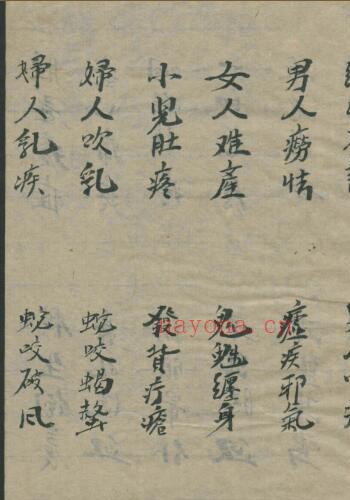 男人癆怯 瘧疾邪氣
女人难產 鬼魅纏身
小児肚疼 發背疔瘡
婦人吹乳 蛇咬蝎螫
婦人乳疾 蛇咬破风
nayona.cn